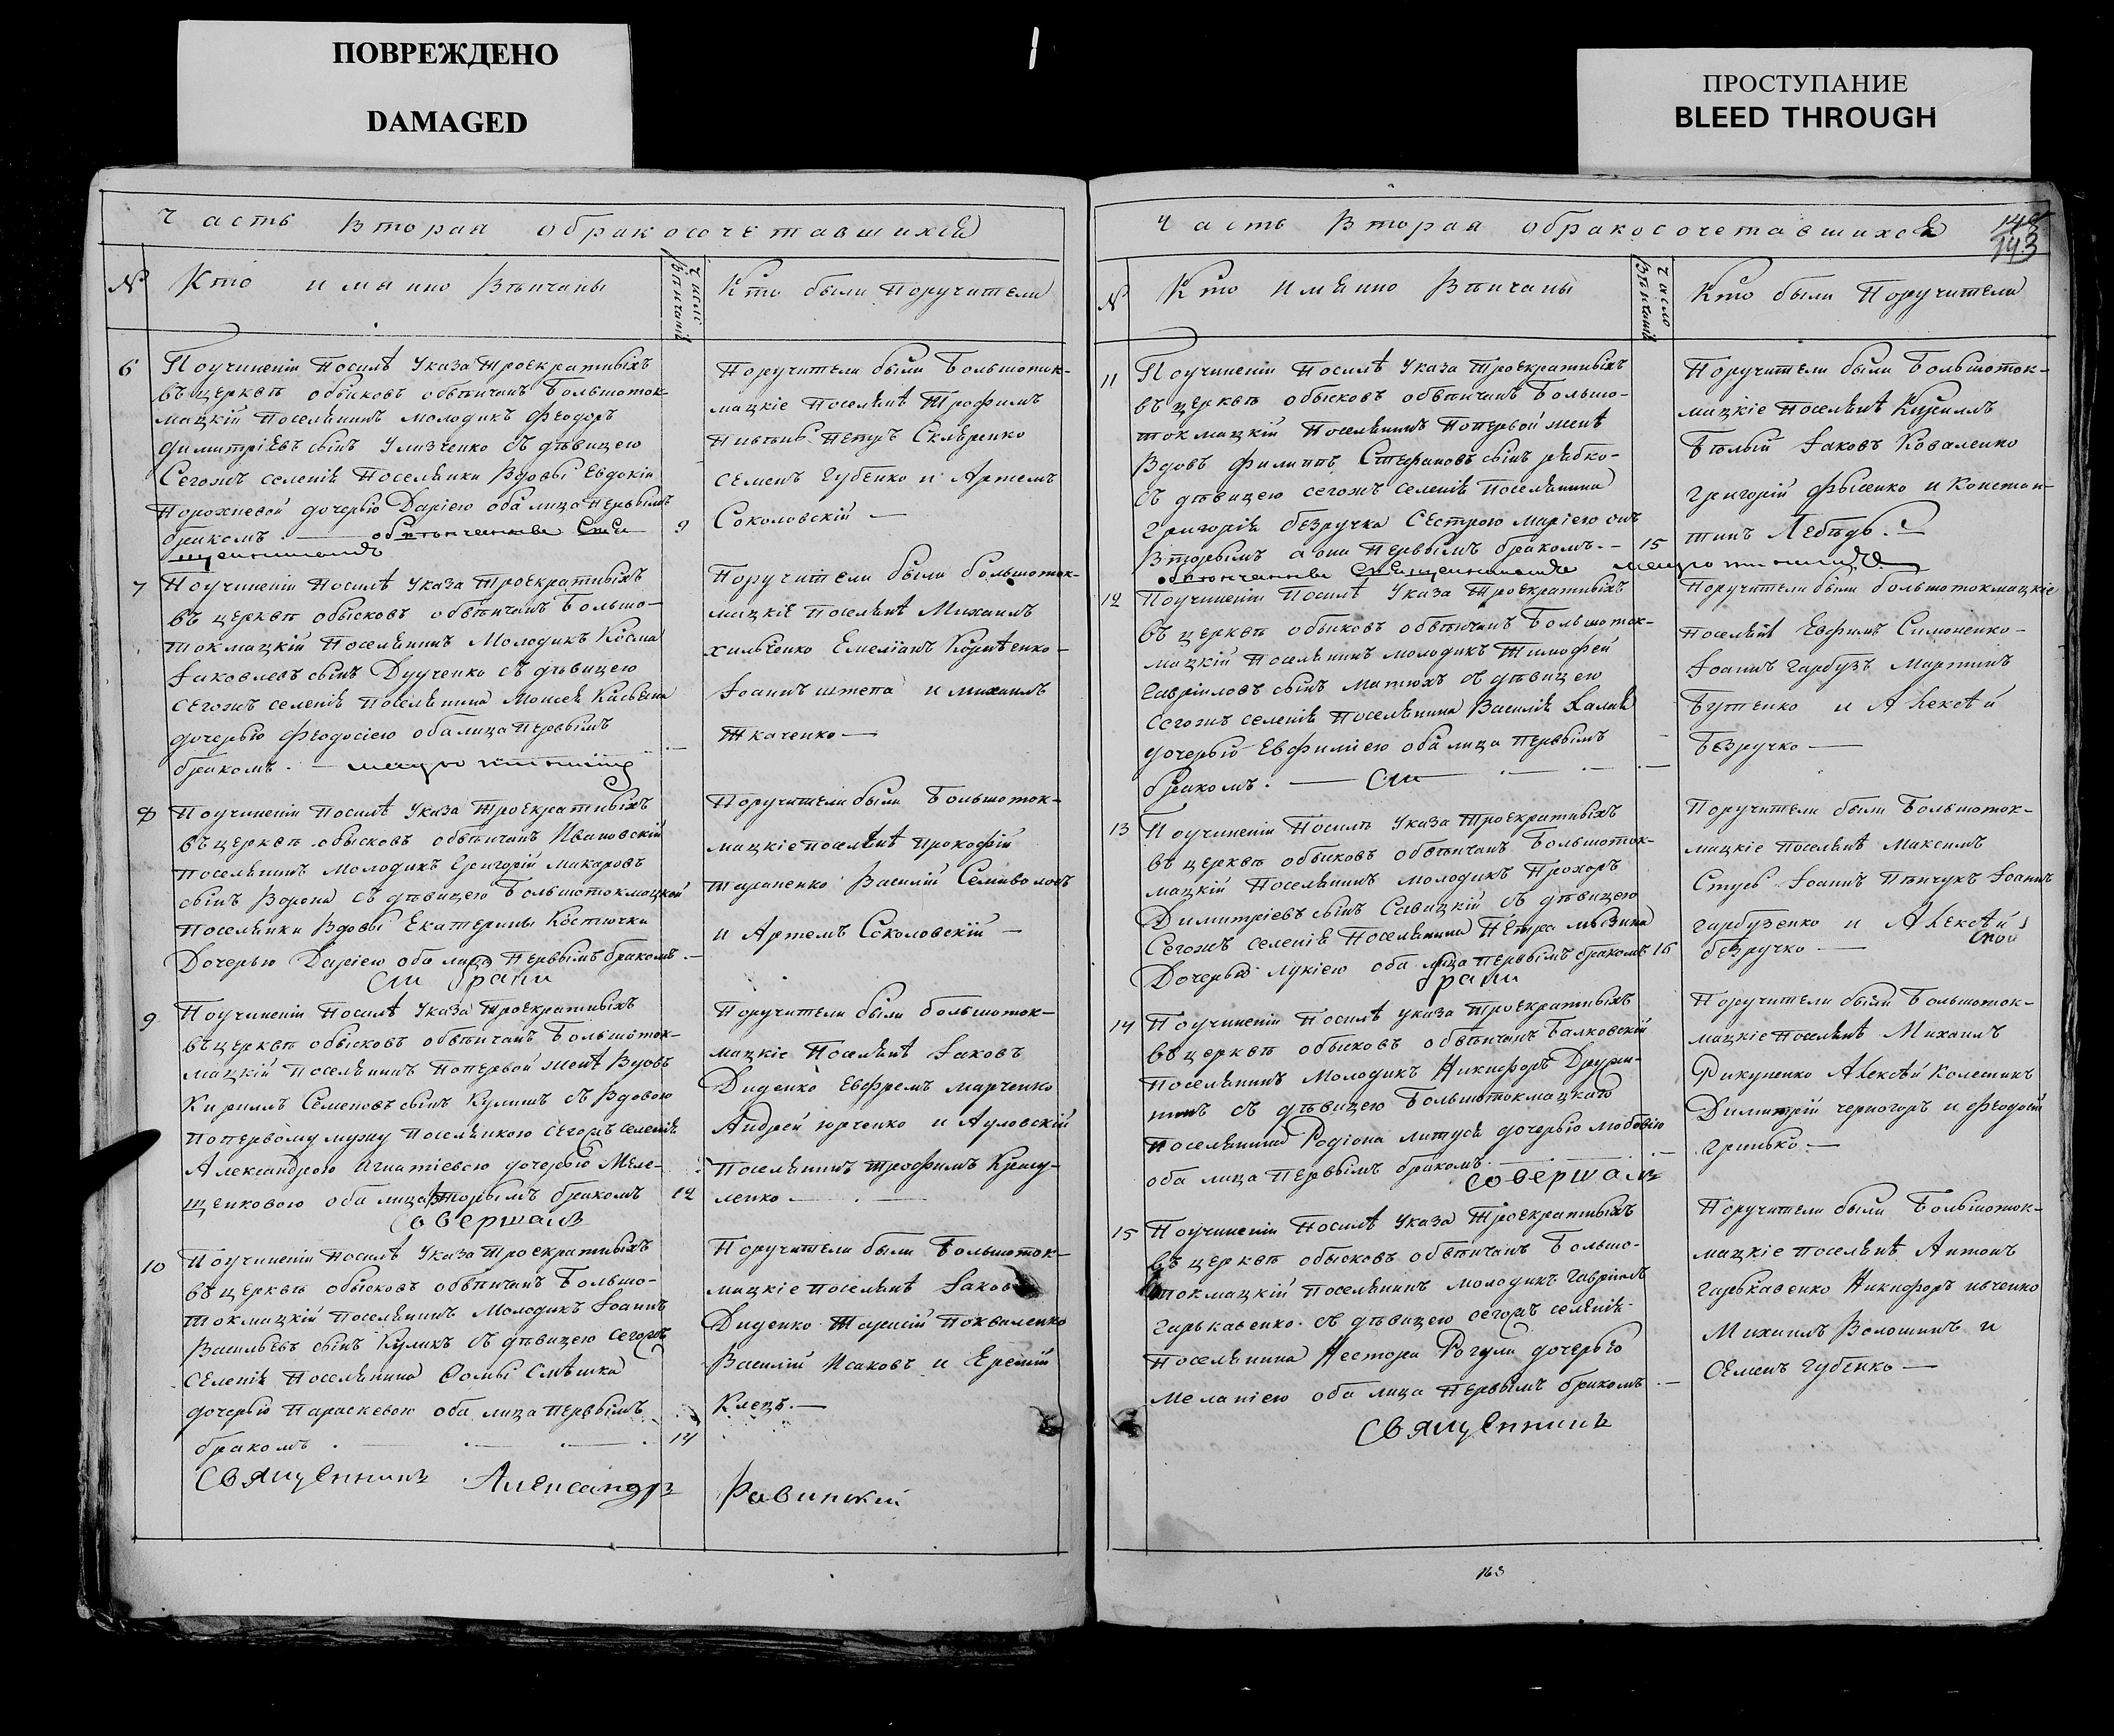 ПОВРЕЖДЕНО
DAMAGED
ПРОСТУПАНИЕ
BLEED THROUGH
Часть Вторая обракосочетавшихся
№
Кто имянно Вѣнчаны
Число Вѣнчанiй
Кто были Поручители
6
Поучиненiи Посилѣ Указа Троекратныхъ
въ церквѣ обысковъ обвѣнчанъ Большоток-
мацкiй Поселянинъ молодикъ Феодоръ
Димитрiевъ сынъ съ дѣвицею
Сегожъ селенiя Поселянки Вдовы Евдокiи
Порохневой дочерью Дарiею оба лица первымъ
бракомъ
9
Поручители были Большоток-
мацкiе Поселянѣ Трофимъ
Петръ Скляренко
Семенъ Губенко и Артемъ
Соколовскiй
7
Поучиненiи Посилѣ Указа Троекратныхъ
въ церквѣ обысковъ обвѣнчанъ Большо-
токмацкiй Поселянинъ Молодикъ Косма
Iаковлевъ сынъ Дудченко съ дѣвицею
сегожъ селенiя Поселянина Моисея
дочерью Феодосiею оба лица Первымъ
бракомъ.
Поручители были большоток-
мацкiе Поселянѣ Михаилъ
хильченко Емелiанъ
Iоаннъ штепа и михаилъ
Ткаченко
8
Поучиненiи Посилѣ Указа Троекратныхъ
въ церквѣ обысковъ обвѣнчанъ Ивановскiй
Поселянинъ Молодикъ Григорiй макаровъ
сынъ Ворона съ дѣвицею Большотокмацкой
Поселянки Вдовы Екатерины Костючки
Дочерью Дарiею оба лица Первымъ бракомъ
Поручители были Большоток-
мацкiе поселянѣ Прокофiй
тараненко Василiй Семиволосъ
и Артемъ Соколовскiй
9
Поучиненiи Посилѣ Указа Троекратныхъ
въ церквѣ обысковъ обвѣнчанъ Большоток-
мацкiй Поселянинъ Попервой женѣ Вдовъ
Кириллъ Семеновъ сынъ Кулишъ съ Вдовою
попервому мужу Поселянкою сегожъ селенiя
Александрою Игнатiевою дочерью Меле-
щенковою оба лица Вторымъ бракомъ
12
Совершалъ
Поручители были большоток-
мацкiе Поселянѣ Iаковъ
Диденко Евфремъ марченко
Андрей юрченко и Ауловскiй
Поселянинъ Трофимъ
ленко
10
Поучиненiи Посилѣ Указа Троекратныхъ
въ церквѣ обысковъ обвѣнчанъ Большо-
токмацкiй Поселянинъ Молодикъ Iоаннъ
Васильевъ сынъ Куликъ съ дѣвицею сегожъ
селенiя Поселянина Фомы Смѣшка
дочерью Параскевою оба лица первымъ
бракомъ
14
Поручители были Большоток-
мацкiе поселянѣ Iаковъ
Диденко Тарасiй Поковаленко
Василiй Исаковъ и Еремiй
Клецъ.
Священникъ Александръ
Часть Вторая обракосочетавшихся
143
№
Кто Имянно Вѣнчаны
Число Вѣнчанiй
Кто были Поручители
11
Поучиненiи Посилѣ Указа Троекратныхъ
въ церквѣ обысковъ обвѣнчанъ Большо-
токмацкiй Поселянинъ Попервой женѣ
Вдовъ Филиппъ Стефановъ сынъ рябко-
съ дѣвицею сегожъ селенiя Поселянина
Григорiя безручка Сестрою Марiею онъ
Вторымъ а она Первымъ бракомъ.
15
Поручители были Большоток-
мацкiе Поселянѣ Кириллъ
Бѣлый Iаковъ Коваленко
Григорiй и Констан-
тинъ Лебѣдь.
12
Поучиненiи Посилѣ Указа Троекратныхъ
въ церквѣ обысковъ обвѣнчанъ Большоток-
мацкiй Поселянинъ молодикъ Тимофей
Гаврiиловъ сынъ Матюхъ съ дѣвицею
сегожъ селенiя Поселянина Василiя Халия
дочерью Евфимiею оба лица первымъ
бракомъ.
Поручители были большотокмацкiе
поселянѣ Евфимъ Симоненко
Iоаннъ гарбузъ мартинъ
Бутенко и Алексѣй
Безручко
13
Поучиненiи Посилѣ Указа Троекратныхъ
въ церквѣ обысковъ обвѣнчанъ Большоток-
мацкiй Поселянинъ молодикъ Прохоръ
Димитрiевъ сынъ Савицкiй съ дѣвицею
Сегожъ селенiя Поселянина Петра мызина
Дочерью Лукiею оба лица первымъ бракомъ
16
Поручители были Большоток-
мацкiе Поселянѣ Максимъ
Стусъ Iоаннъ Пѣнчукъ Iоаннъ
гарбузенко и Алексѣй
безручко
14
Поучиненiи Посилѣ указа Троекратныхъ
въ церквѣ обысковъ обвѣнчанъ Балковскiй
Поселянинъ Молодикъ Никифоръ Дружи-
нинъ съ дѣвицею Большотокмацкаго
Поселянина Родiона литуся дочерью любовiю
оба лица Первымъ бракомъ
Совершалъ
Поручители были Большоток-
мацкiе поселянѣ Михаилъ
Рикуненко Алексѣй Колесникъ
Димитрiй черногоръ и Феодосiй
гринько
15
Поучиненiи Посилѣ Указа Троекратныхъ
въ церквѣ обысковъ обвѣнчанъ Большо-
токмацкiй поселянинъ молодикъ Гаврiилъ
Гаркавенко съ дѣвицею сегожъ селенiя
Поселянина Нестора Рогули дочерью
меланiею оба лица Первымъ бракомъ
Поручители были Большоток-
мацкiе поселянѣ Антонъ
Гарькавенко Никифоръ ивченко
Михаилъ Волошинъ и
Семенъ Губенко
Священникъ
163